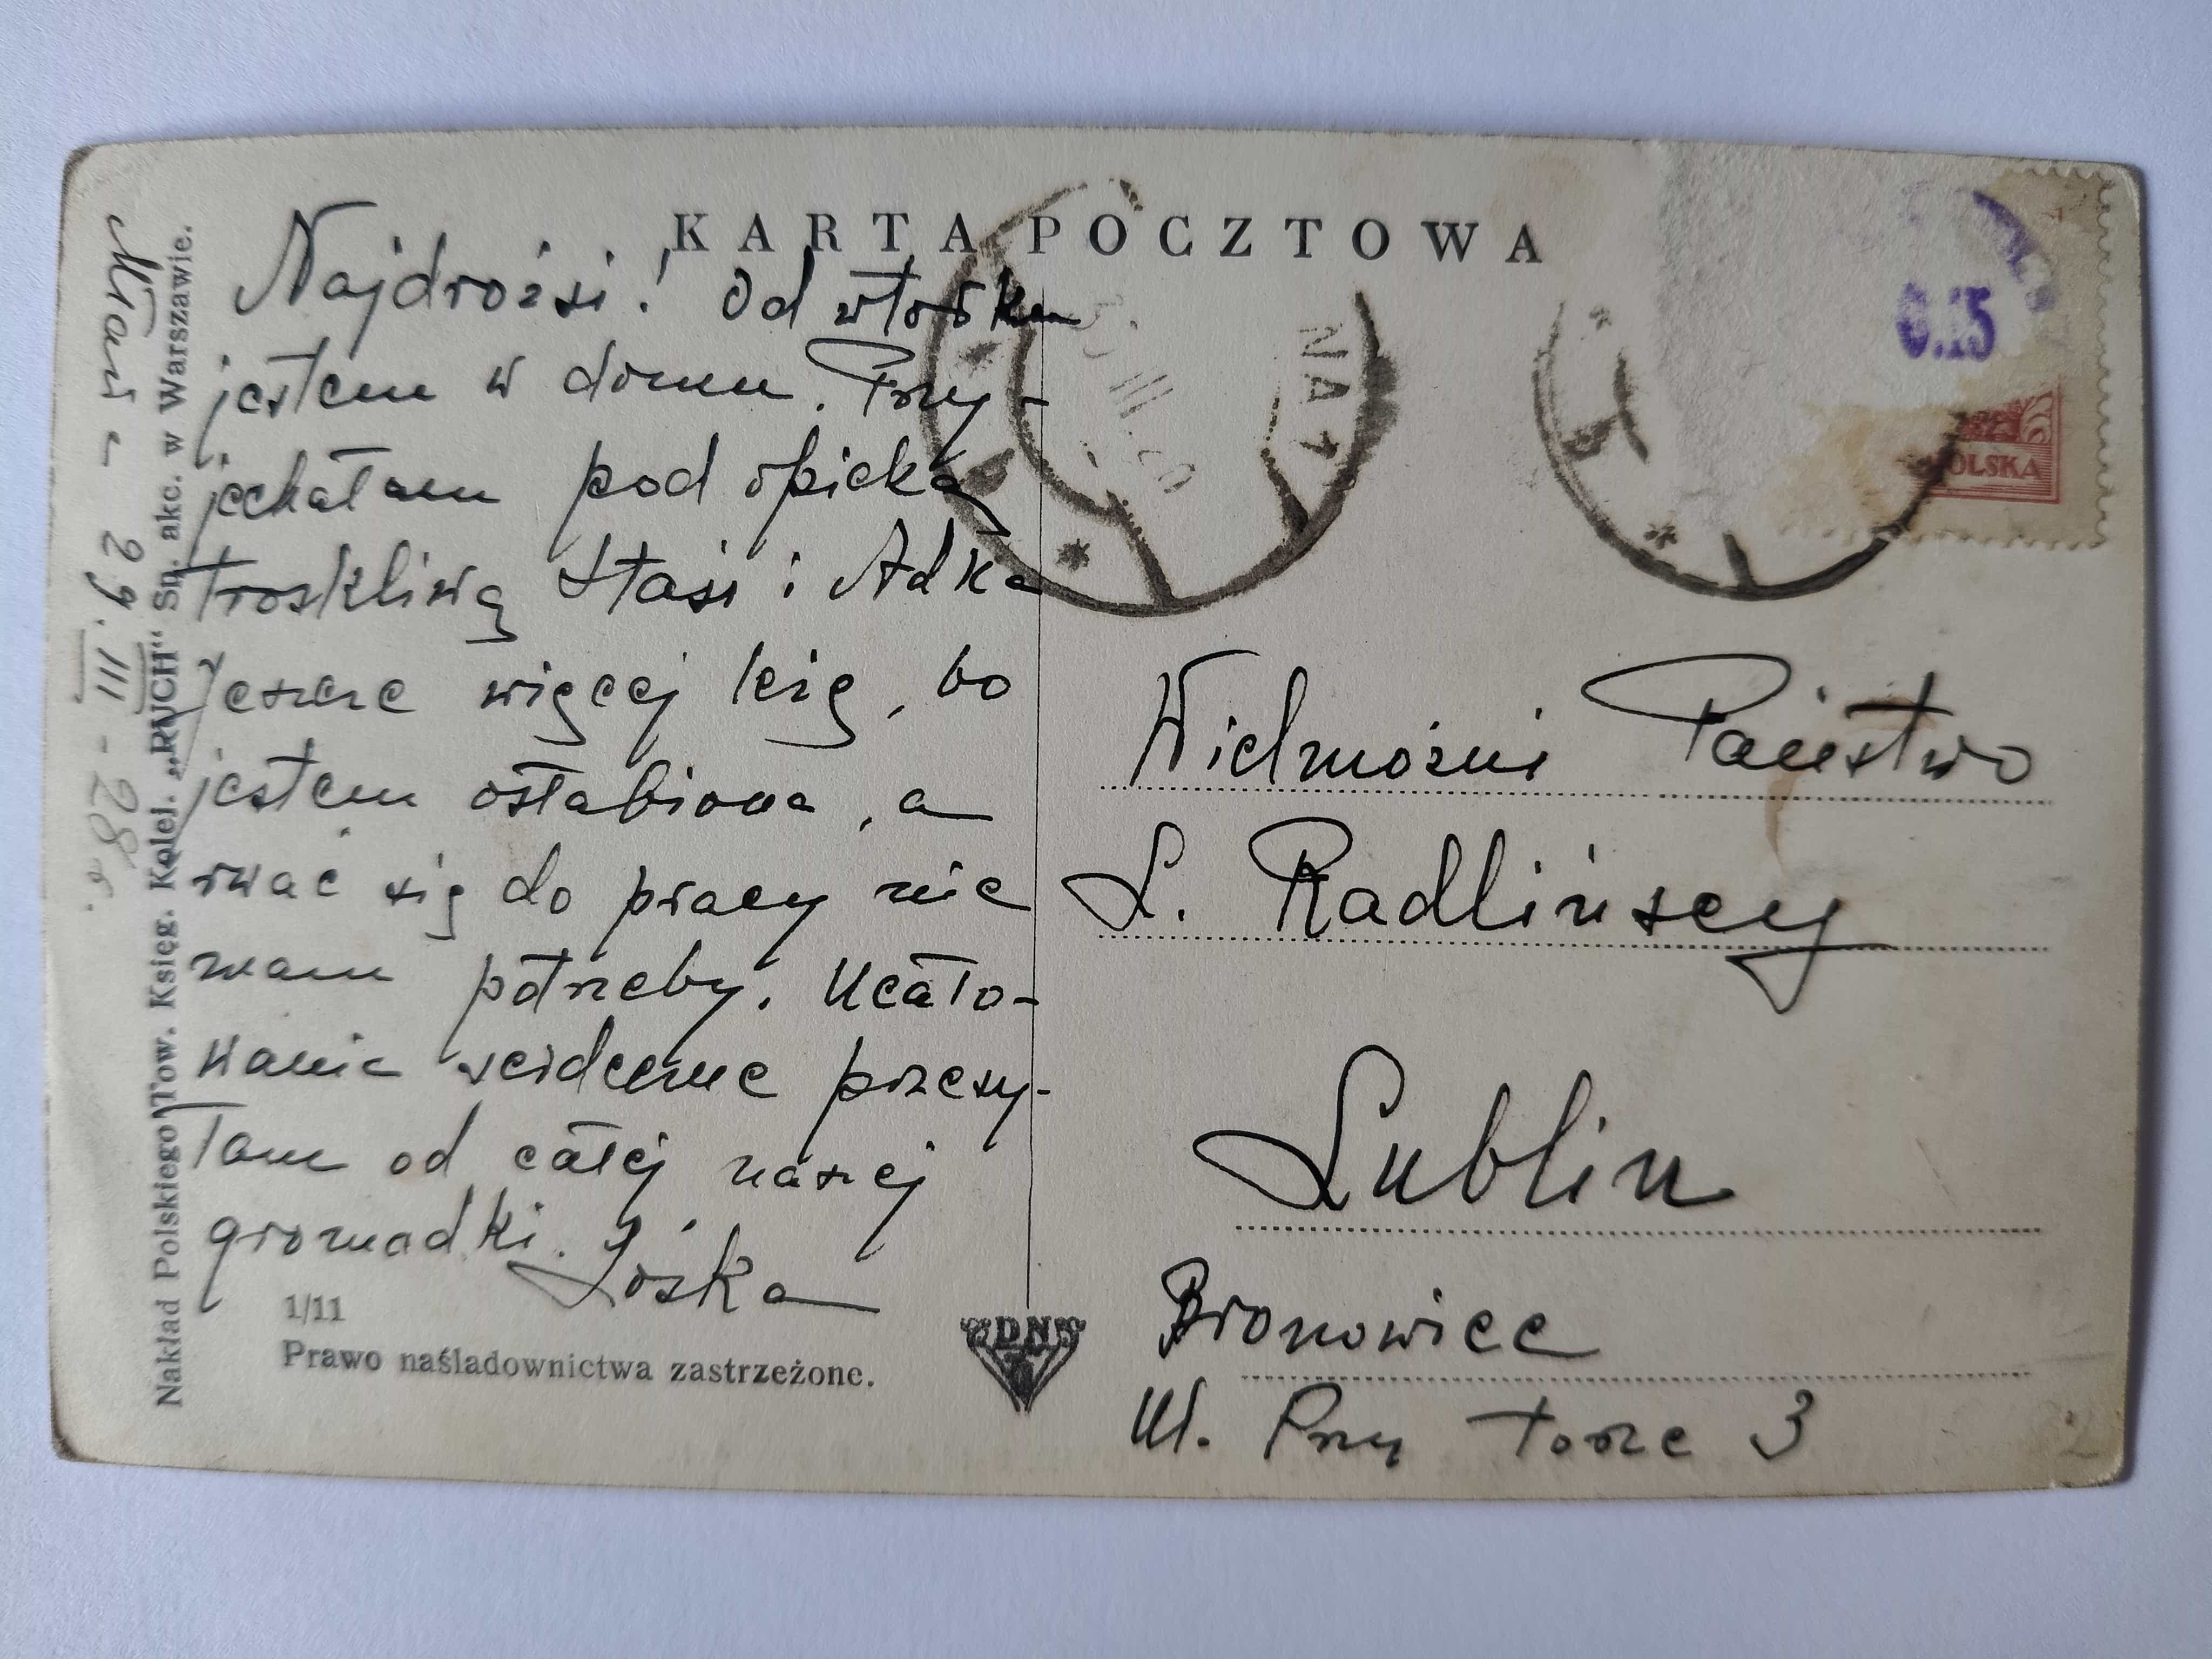 KARTA POCZTOWA
Najdrożsi! Od wtorku
jestem w domu. Przy-
jechałam pod opieką
troskliwą Stasi i Adka
Jeszcze więcej leżę, bo
jestem osłabiona, a
rwać się do pracy nie
mam potrzeby. Ucało-
wania serdeczne przesy-
łam od całej naszej
gromadki. Zośka
29.III-28 r.
Nakład Polskiego Tow. Księg. Kolej. „RUCH“ Sp. akc. w Warszawie.
1/11
Prawo naśladownictwa zastrzeżone.
Wielmożni Państwo
L. Radlińscy
Lublin
Bronowice
Ul. Przy torze 3
NA 1
III
0.15
OLSKA